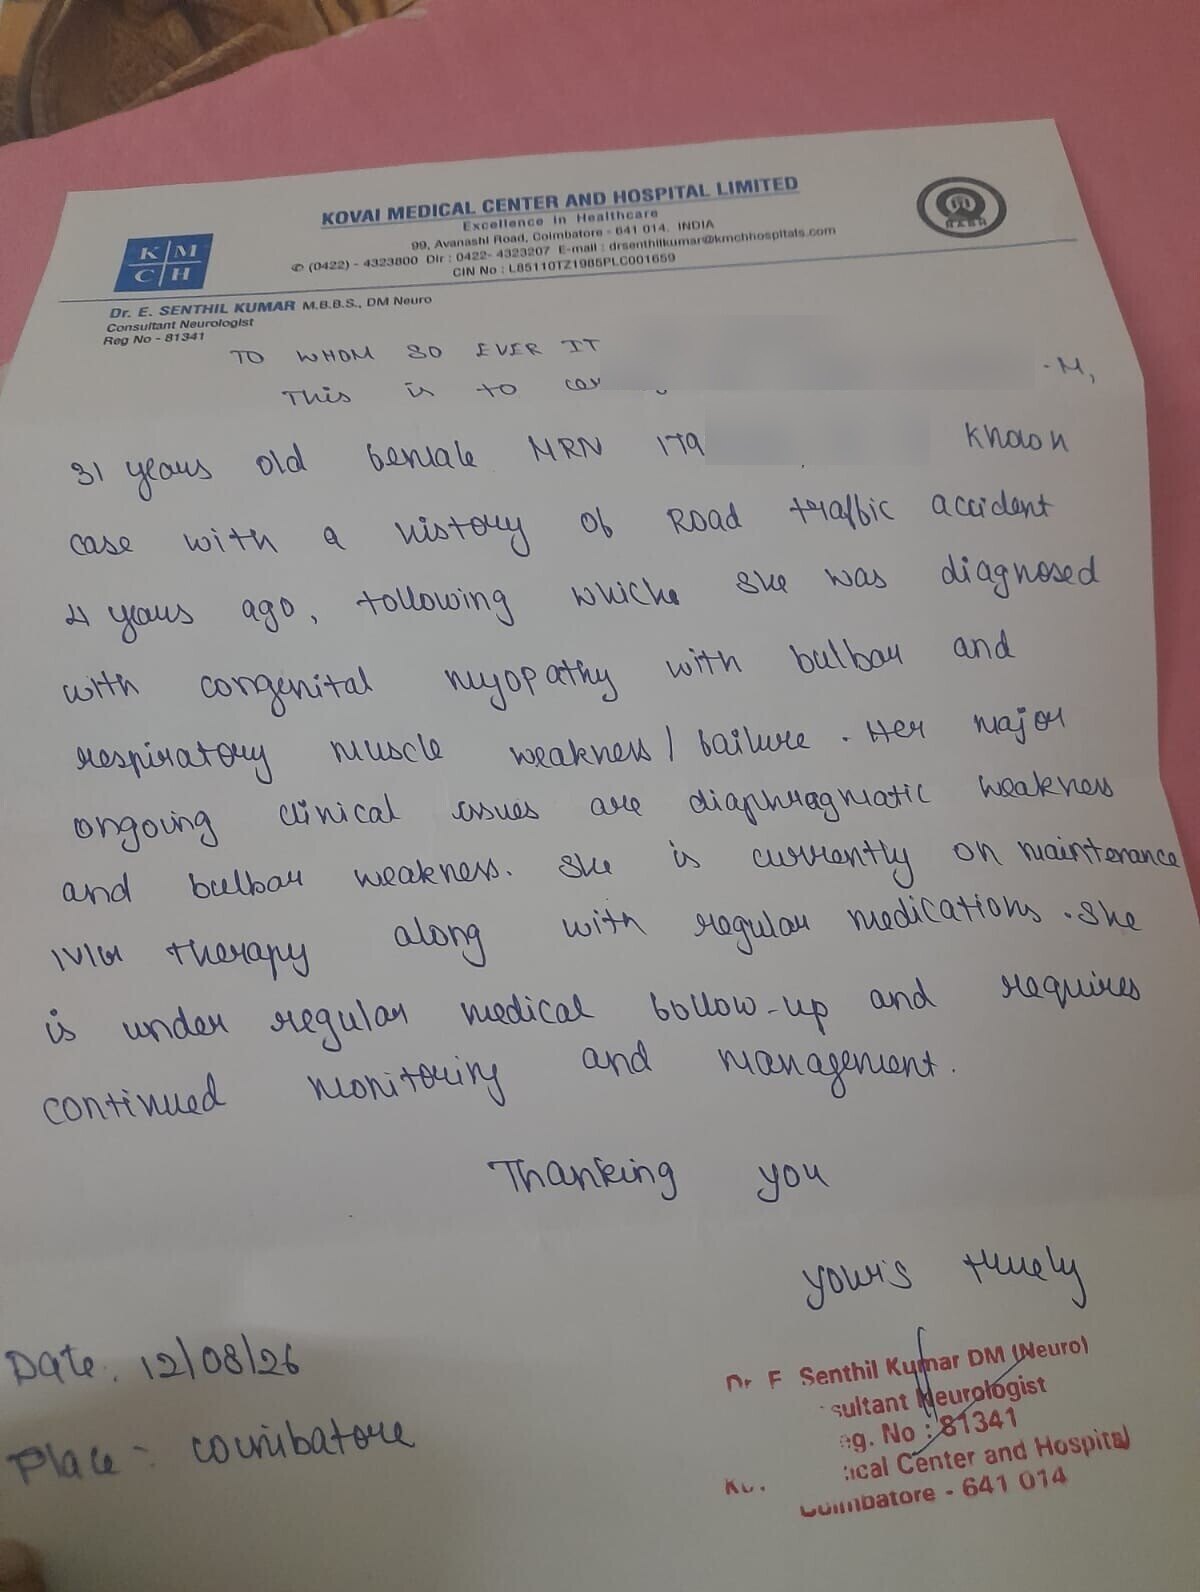 KOVAI MEDICAL CENTER AND HOSPITAL LIMITED
Excellence in Healthcare
99, Avanashi Road, Coimbatore - 641 014. INDIA
✆ (0422) - 4323800 Dir : 0422- 4323207 E-mail : drsenthilkumar@kmchhospitals.com
CIN No : L85110TZ1985PLC001659
K M
C H
Dr. E. SENTHIL KUMAR M.B.B.S., DM Neuro
Consultant Neurologist
Reg No - 81341
TO WHOM SO EVER IT
This is to M,
31 years old female MRN 179 known
case with a history of Road traffic accident
4 years ago, following which she was diagnosed
with congenital myopathy with bulbar and
respiratory muscle weakness/failure. Her major
ongoing clinical issues are diaphragmatic weakness
and bulbar weakness. She is currently on maintenance
IVIG therapy along with regular medications. She
is under regular medical follow-up and requires
continued monitoring and management.
Thanking you
yours truely
Date. 12/08/26
Place - 
Dr Senthil Kumar DM (Neuro)
sultant Neurologist
eg. No : 81341
ical Center and Hospital
Coimbatore - 641 014